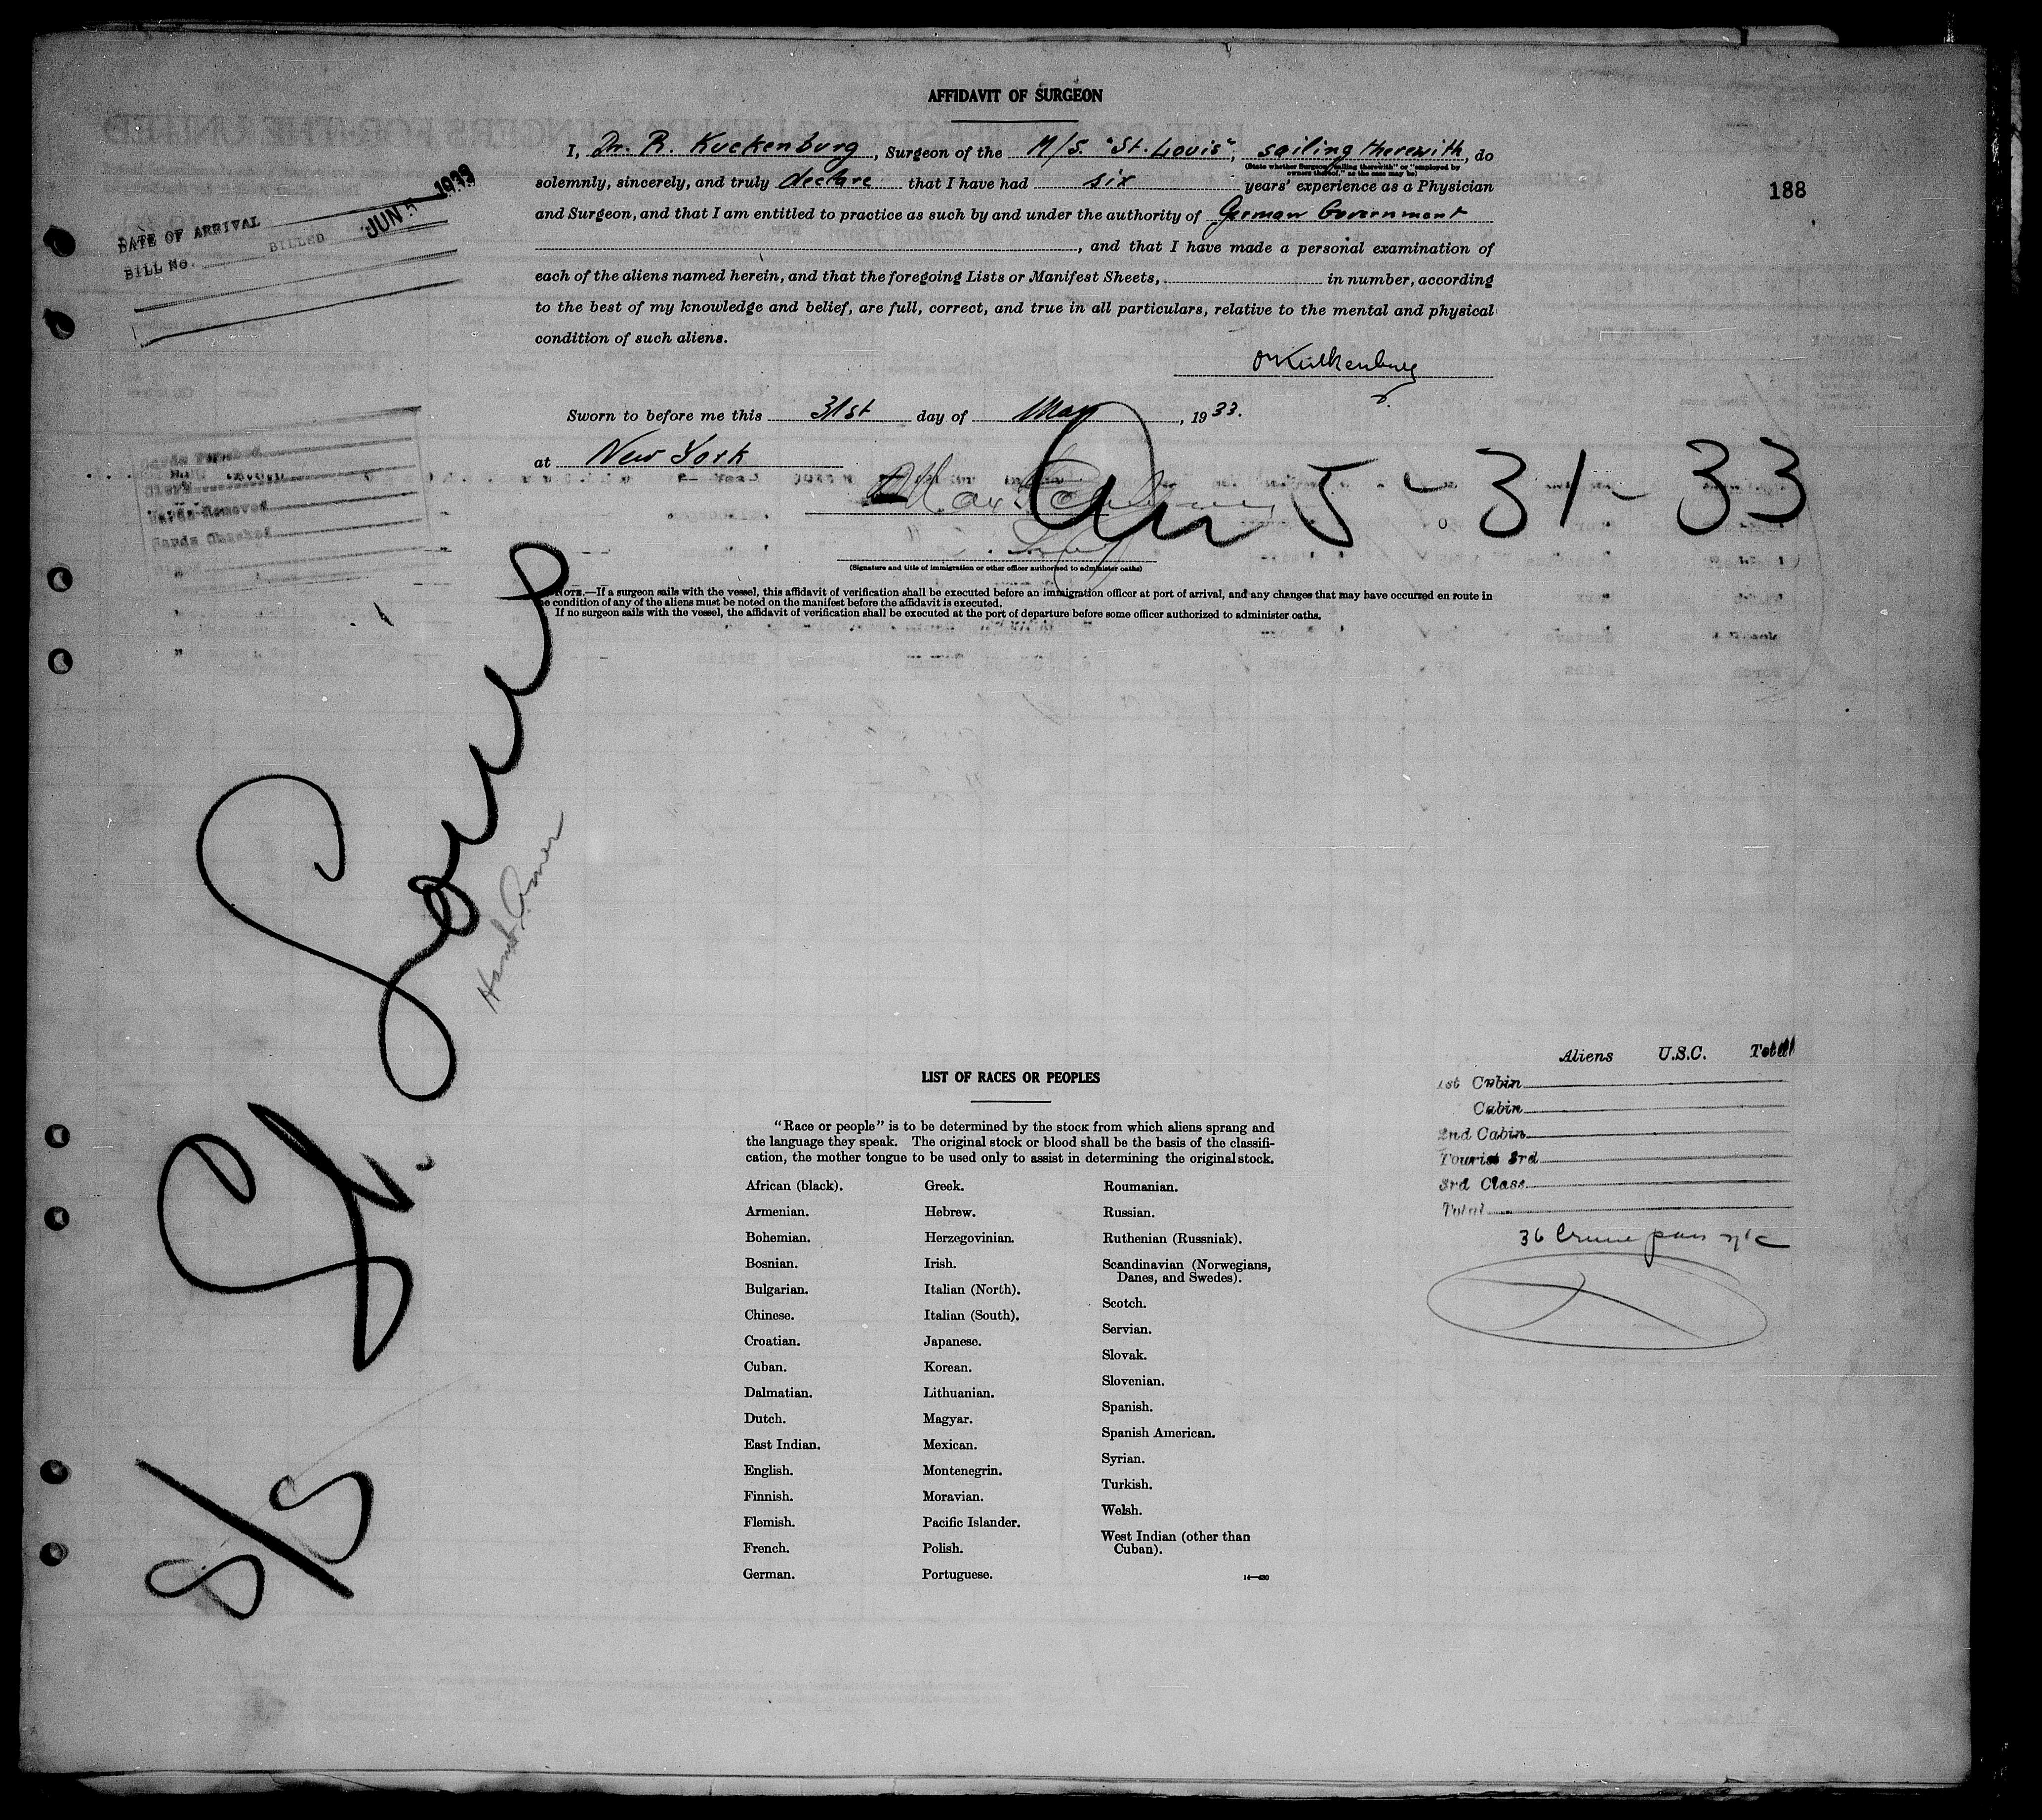 AFFIDAVIT OF SURGEON
I, Dr. R. Kuckenburg, Surgeon of the M/S. "St. Louis", sailing therewith, do
(State whether Surgeon "sailing therewith" or "employed by
owners thereof," as the case may be)
solemnly, sincerely, and truly declare that I have had six years' experience as a Physician
and Surgeon, and that I am entitled to practice as such by and under the authority of German Government
, and that I have made a personal examination of
each of the aliens named herein, and that the foregoing Lists or Manifest Sheets, in number, according
to the best of my knowledge and belief, are full, correct, and true in all particulars, relative to the mental and physical
condition of such aliens.
Sworn to before me this 31st day of May, 1933.
at New York
(Signature and title of immigration or other officer authorized to administer oaths)
NOTE.—If a surgeon sails with the vessel, this affidavit of verification shall be executed before an immigration officer at port of arrival, and any changes that may have occurred en route in
the condition of any of the aliens must be noted on the manifest before the affidavit is executed.
If no surgeon sails with the vessel, the affidavit of verification shall be executed at the port of departure before some officer authorized to administer oaths.
188
DATE OF ARRIVAL
BILL No. BILLED JUN 5 1933
Arr 5-31-33
S/S St. Louis
Hamb. Amer
LIST OF RACES OR PEOPLES
"Race or people" is to be determined by the stock from which aliens sprang and
the language they speak. The original stock or blood shall be the basis of the classifi-
cation, the mother tongue to be used only to assist in determining the original stock.
African (black).
Armenian.
Bohemian.
Bosnian.
Bulgarian.
Chinese.
Croatian.
Cuban.
Dalmatian.
Dutch.
East Indian.
English.
Finnish.
Flemish.
French.
German.
Greek.
Hebrew.
Herzegovinian.
Irish.
Italian (North).
Italian (South).
Japanese.
Korean.
Lithuanian.
Magyar.
Mexican.
Montenegrin.
Moravian.
Pacific Islander.
Polish.
Portuguese.
Roumanian.
Russian.
Ruthenian (Russniak).
Scandinavian (Norwegians,
Danes, and Swedes).
Scotch.
Servian.
Slovak.
Slovenian.
Spanish.
Spanish American.
Syrian.
Turkish.
Welsh.
West Indian (other than
Cuban).
14—430
Aliens U.S.C. Total
1st Cabin
Cabin
2nd Cabin
Tourist 3rd
3rd Class
Total
36